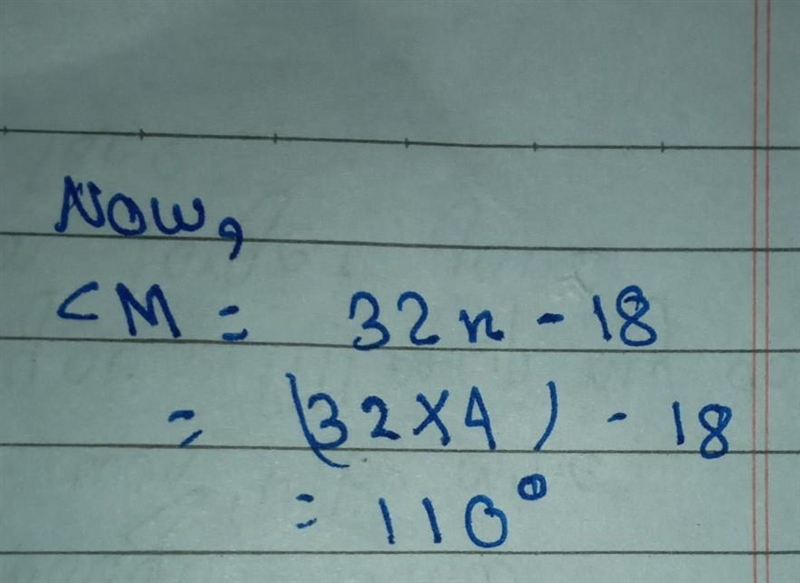 Now,
<M = 32x - 18
= (32×4) - 18
= 110°